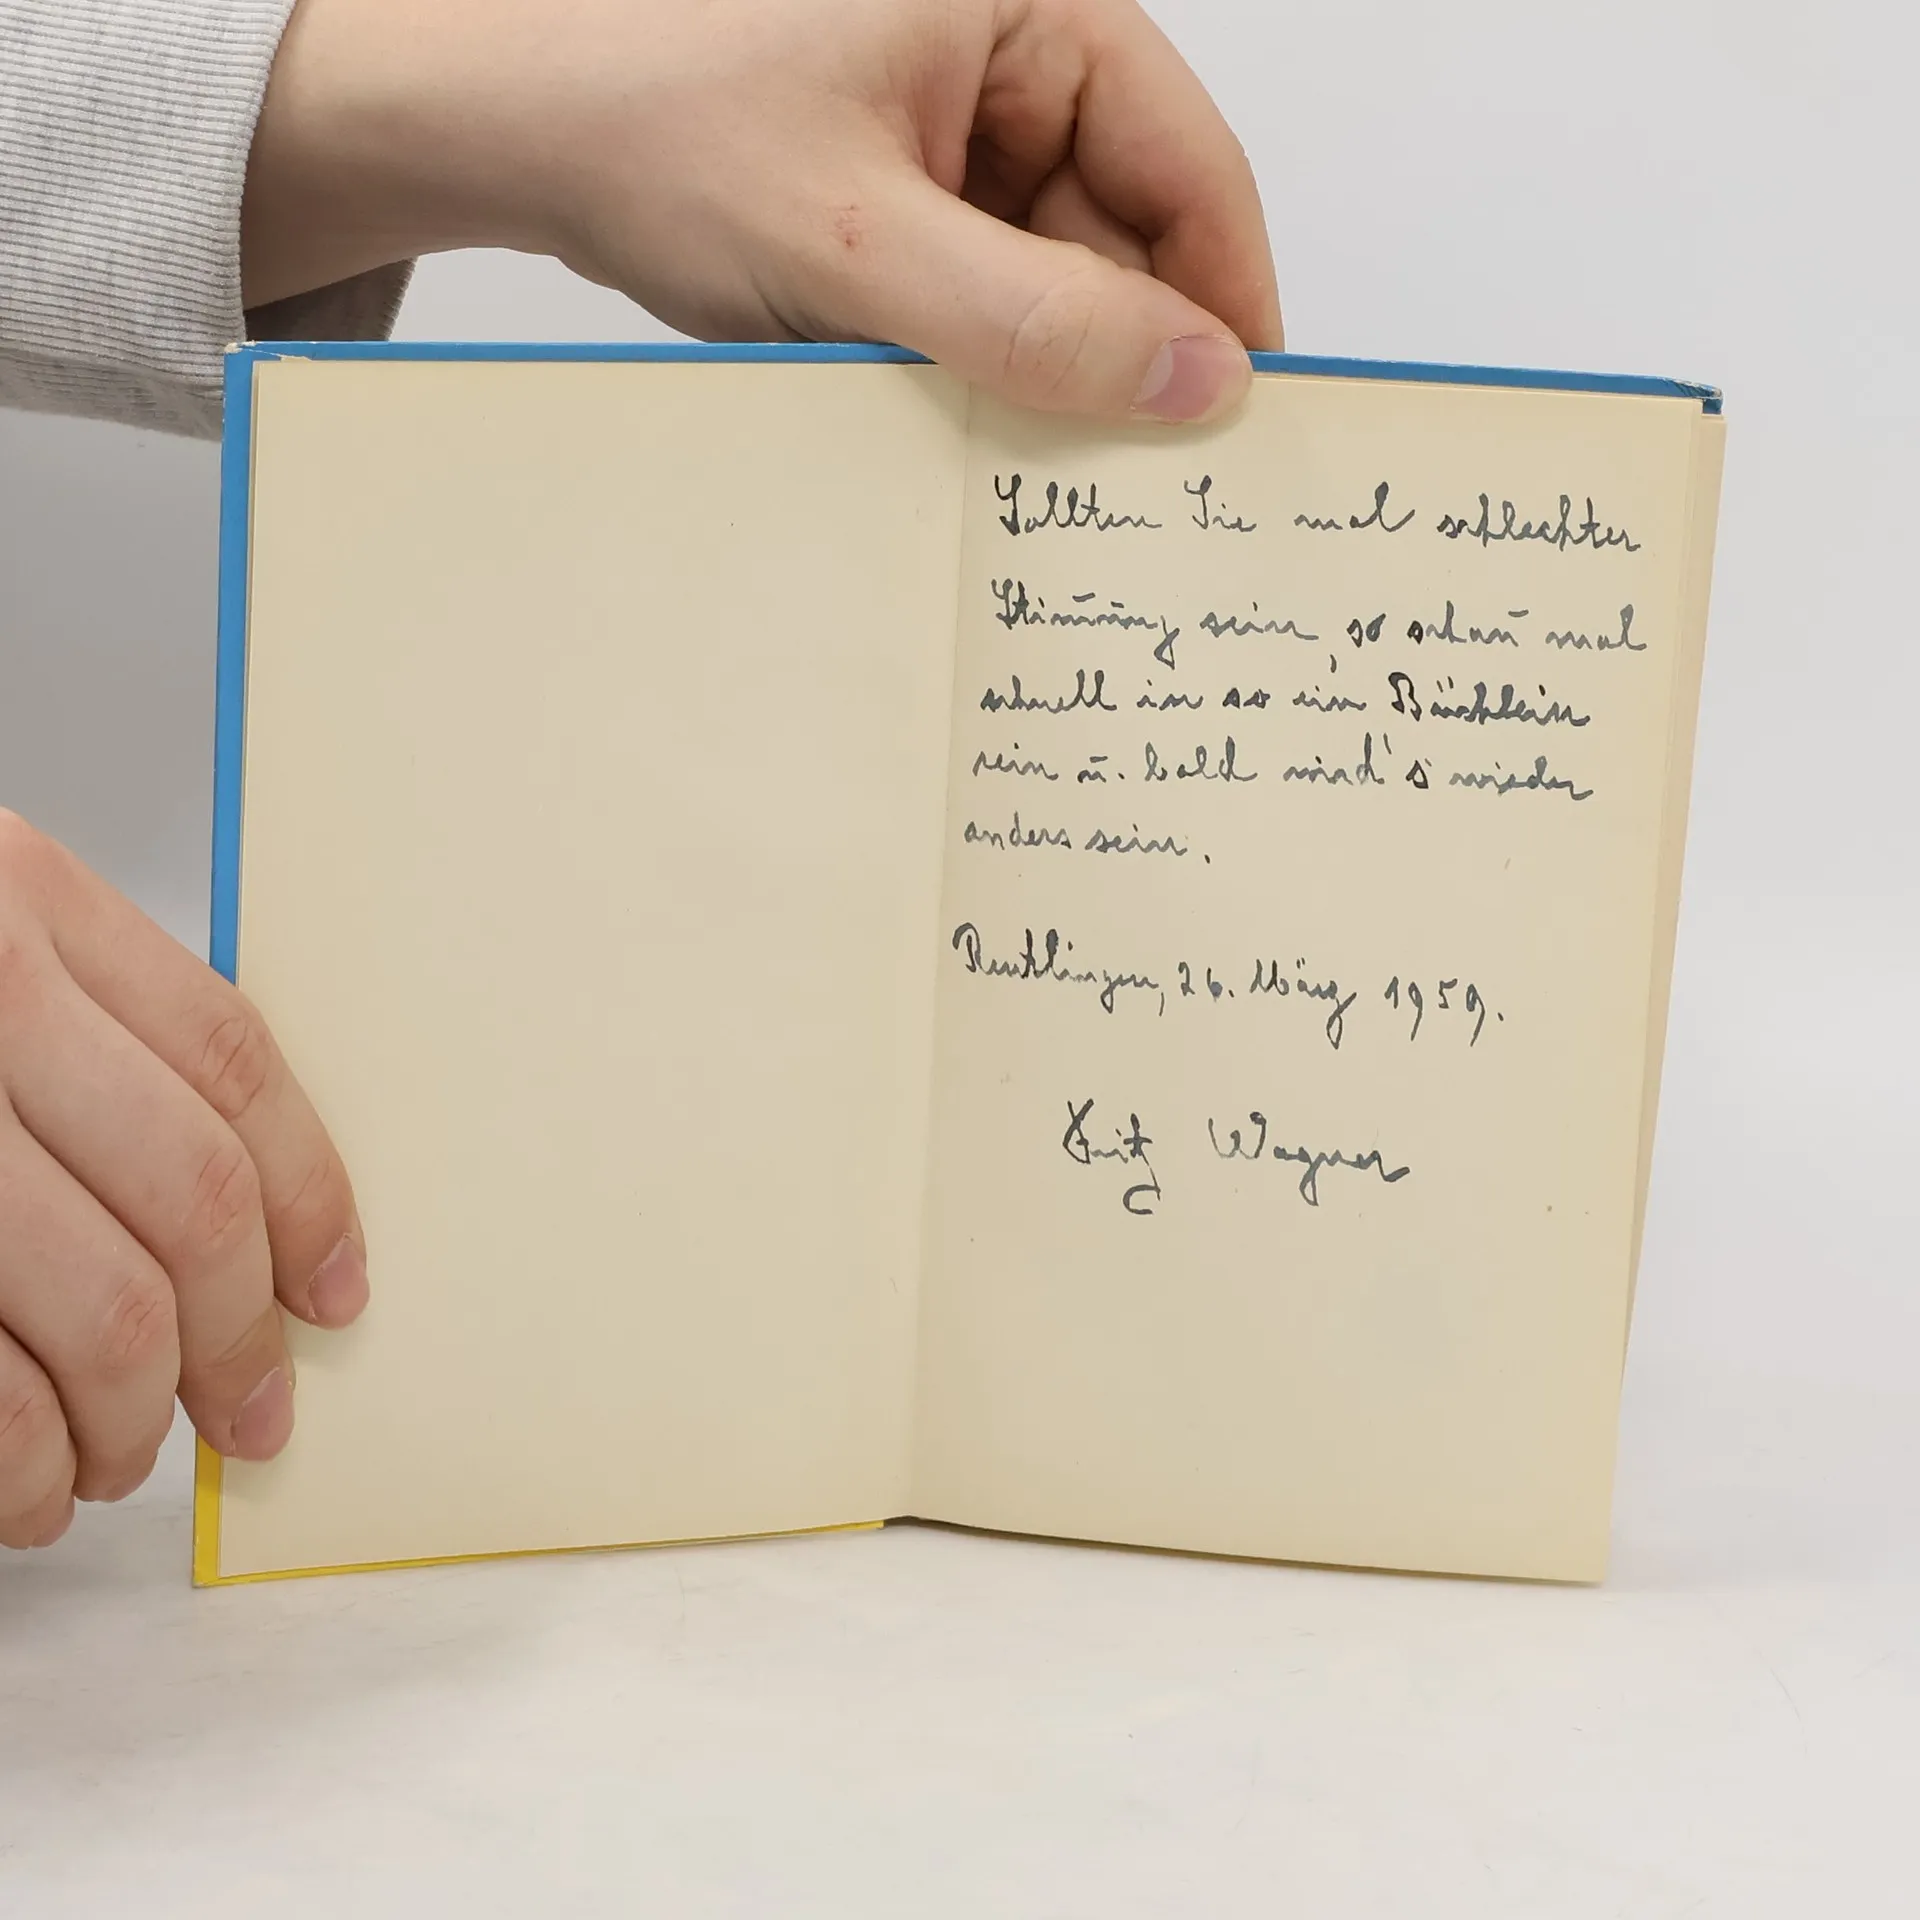 Sollten Sie mal schlechter
Stimmung sein, so schau mal
schnell in so ein Büchlein
rein u. bald wird's wieder
anders sein.
Reutlingen, 26. März 1959.
Fritz Wagner